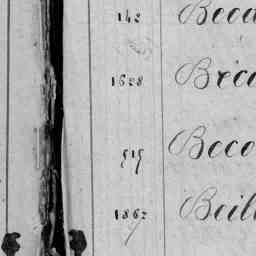 142 Beca
1628 Béca
515 Beco
1862 Beil